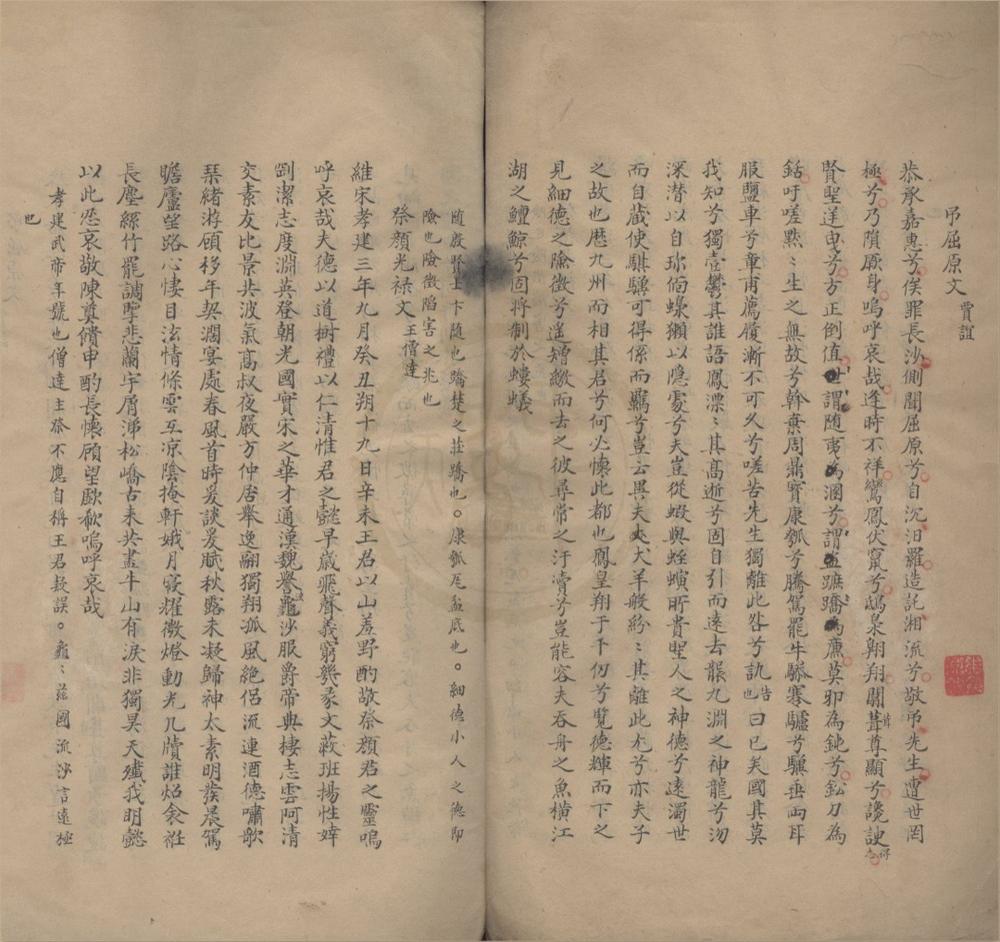 吊屈原文 賈誼
恭承嘉惠兮俟罪長沙側聞屈原兮自沉汨羅造託湘流兮敬吊先生遭世罔
極兮乃隕厥身嗚呼哀哉逢時不祥鸞鳳伏竄兮鴟梟翱翔闒茸尊顯兮讒諛得志
賢聖逆曳兮方正倒值世謂隨夷為溷兮謂盗蹠蹻為廉莫邪為鈍兮鉛刀為
銛吁嗟默ミ生之無故兮斡棄周鼎寶康瓠兮騰駕罷牛驂蹇驢兮驥垂両耳
服鹽車兮章甫薦履漸不可久兮嗟苦先生獨離此咎兮訊告也曰已矣國其莫
我知兮獨壹鬱其誰語鳳漂ミ其高逝兮固自引而遠去襲九淵之神龍兮沕
深潛以自珎偭蟂獺以隱處兮夫豈從蝦與蛭螾所貴聖人之神德兮遠濁世
而自藏使騏驥可得係而羈兮豈云異夫犬羊般紛ミ其離此尤兮亦夫子
之故也歷九州而相其君兮何必懷此都也鳳皇翔于千仞兮覽德輝而下之
見細德之險徵兮遙增繳而去之彼尋常之汙瀆兮豈能容夫吞舟之魚橫江
湖之鱣鯨兮固將制於螻蟻
隨殷賢士卞随也蹻楚之莊蹻也。康瓠瓦盆底也。細德小人之德即
險也險徵陷害之兆也
祭顏光祿文 王僧達
維宋孝建三年九月癸丑朔十九日辛未王君以山羞野酌敬祭顏君之靈嗚
呼哀哉夫德以道樹禮以仁清惟君之懿早歲飛聲義窮幾彖文蔽班揚性婞
剛潔志度淵英登朝光國實宋之華才通漢魏譽龜沙服爵帝典棲志雲阿清
交素友比景共波氣高叔夜嚴方仲居舉逸翮獨翔孤風絕侶流連酒德嘯歌
琹緒游顧移年契濶宴處春風首時爰談爰賦秋露未凝歸神太素明發晨駕
瞻廬望路心悽目泫情條雲互凉陰掩軒娥月寢耀微燈動光几牘誰炤衾衽
長塵絲竹罷調擥悲蘭宇屑涕松嶠古来共盡牛山有淚非獨昊天殲我明懿
以此忍哀敬陳奠饋申酌長懷顧望歔欷嗚呼哀哉
孝建武帝年號也僧達主祭不應自稱王君疑誤。龜ミ茲國流沙言遠極
也